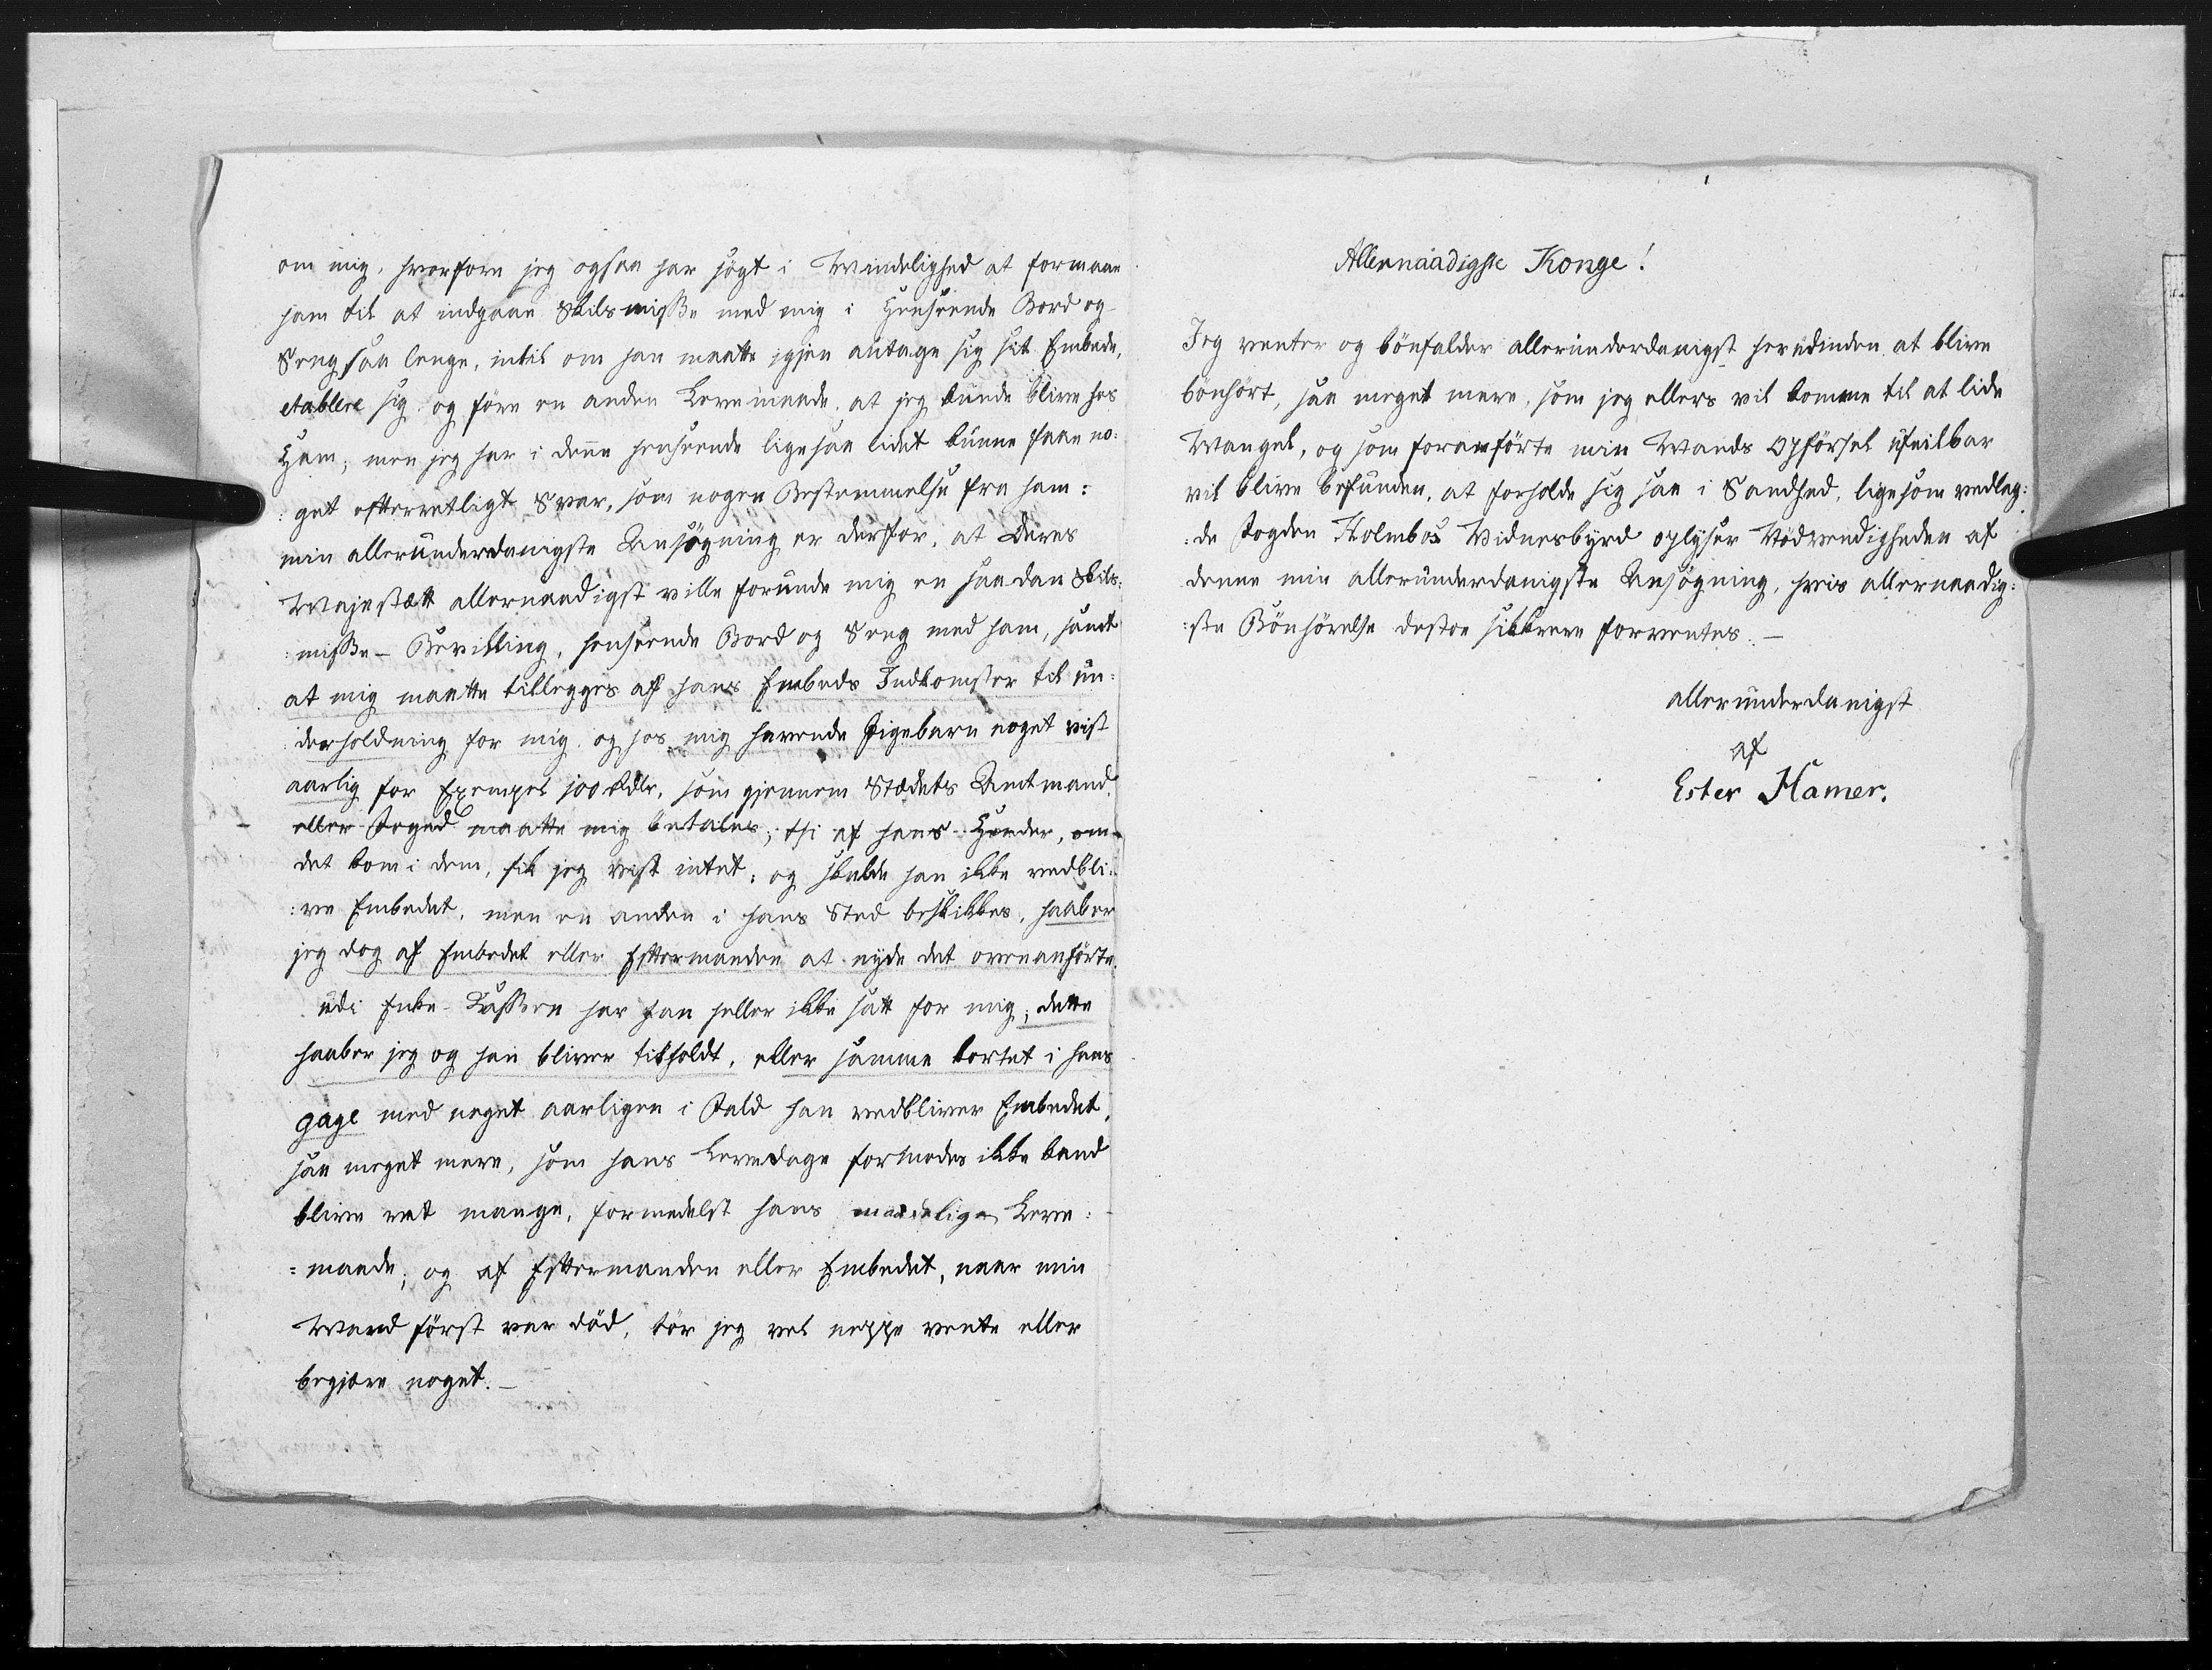 om mig, hvorfore jeg ogsaa har søgt i Mindelighed at formaae
ham til at indgaae Skilsmisse med mig i Henseende Bord og
Seng saa lenge, intil om han maatte igjen antage sig sit Embede,
etablere sig og føre en anden Levemaade, at jeg kunde blive hos
Ham; men jeg har i denne henseende ligesaa lidet kunne faae no:
:get efterretligt Svar, som nogen Bestemmelse fra ham:
min allerunderdanigste Ansøgning er derfor, at Deres
Majestætt allernaadigst ville forunde mig en saadan Skils:
:misse-Bevilling, henseende Bord og Seng med ham, samt
at mig maatte tillegges af hans Embeds Indkomster til un:
:derholdning for mig og hos mig havende Pigebarn noget vist
aarlig for Exempel 100 rdlr, som gjennem Stædets Amtmand
eller Foged maatte mig betales; thi af hans Hænder, om
det kom i dem, fik jeg vist intet; og skulde han ikke vedbli:
:ve Embedet, men en anden i hans Sted beskikkes, haaber
jeg dog af Embedet eller Eftermanden at nyde det ovenanførte.
udi Enke-Kassen har han heller ikke satt for mig; dette
haaber jeg og han bliver tilholdt, eller samme kortet i hans
gage med noget aarligen i Fald han vedbliver Embedet,
saa meget mere, som hans Levedage formodes ikke kand
blive ret mange, formedelst hans Leve:
:maade; og af Eftermanden eller Embedet, naar min
Mand først var død, tør jeg vel neppe vente eller
begjære noget.-
Allernaadigste Konge!
Jeg venter og bønfalder allerunderdanigst herudinden at blive
bønhørt, saa meget mere, som jeg ellers vil komme til at lide
Mangel, og som foranførte min Mands Opførsel ufeilbar
vil blive befunden, at forholde sig saa i Sandhed, ligesom vedlag:
:de Fogden Holmboes Vidnesbyrd oplyser Nødvendigheden af
denne min allerunderdanigste Ansøgning, hvis allernaadig:
:ste Bønhørelse destoe sikkrere forventes.-
allerunderdanigst
af
Ester Hamer.